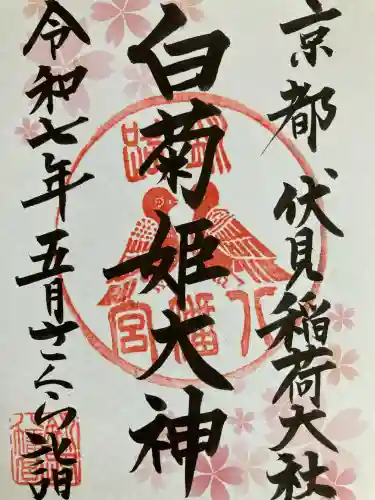 京都 伏見稲荷大社
白菊姫大神
令和七年 五月さくら詣
八幡宮